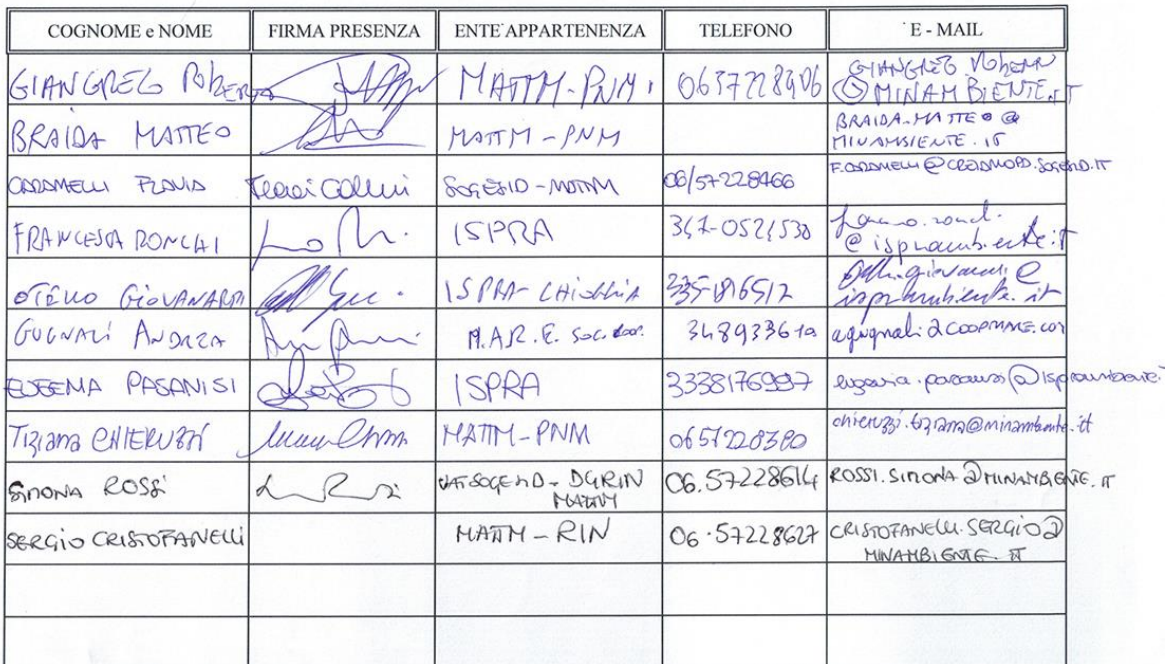 COGNOME e NOME FIRMA PRESENZA ENTE APPARTENENZA TELEFONO E - MAIL
GIANGRECO ROBERTO MATTM-PNM 0657228406 GIANGRECO.ROBERTO
@MINAMBIENTE.IT
BRAIDA MATTEO MATTM-PNM BRAIDA.MATTEO@
MINAMBIENTE.IT
CARAMELLI FLAVIA SOGESID-MATTM 06/57228466
FRANCESCA RONCHI ISPRA 347-0521530
@ isprambiente.it
OTELLO GIOVANARDI ISPRA-CHIOGGIA
isprambiente.it
GUGNALI ANDREA M.A.R.E. Soc. coop. agugnali@COOPMARE.COM
EUGENIA PASANISI ISPRA 3338176997
TIZIANA CHIERUZZI MATTM-PNM 0657228380 chieruzzi.tiziana@minambiente.it
SIMONA ROSSI DGRIN 06.57228614 ROSSI.SIMONA@MINAMBIENTE.IT
MATTM
SERGIO CRISTOFANELLI MATTM-RIN 06.57228627 CRISTOFANELLI.SERGIO@
MINAMBIENTE.IT